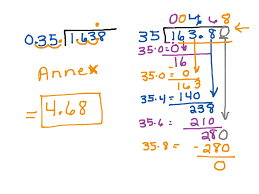 0.35 1.638
Annex
= 4.68
004.68
35 163.80
35·0=0
16
35·0= 0
163
35·4= 140
238
35·6= 210
280
35·8= -280
0